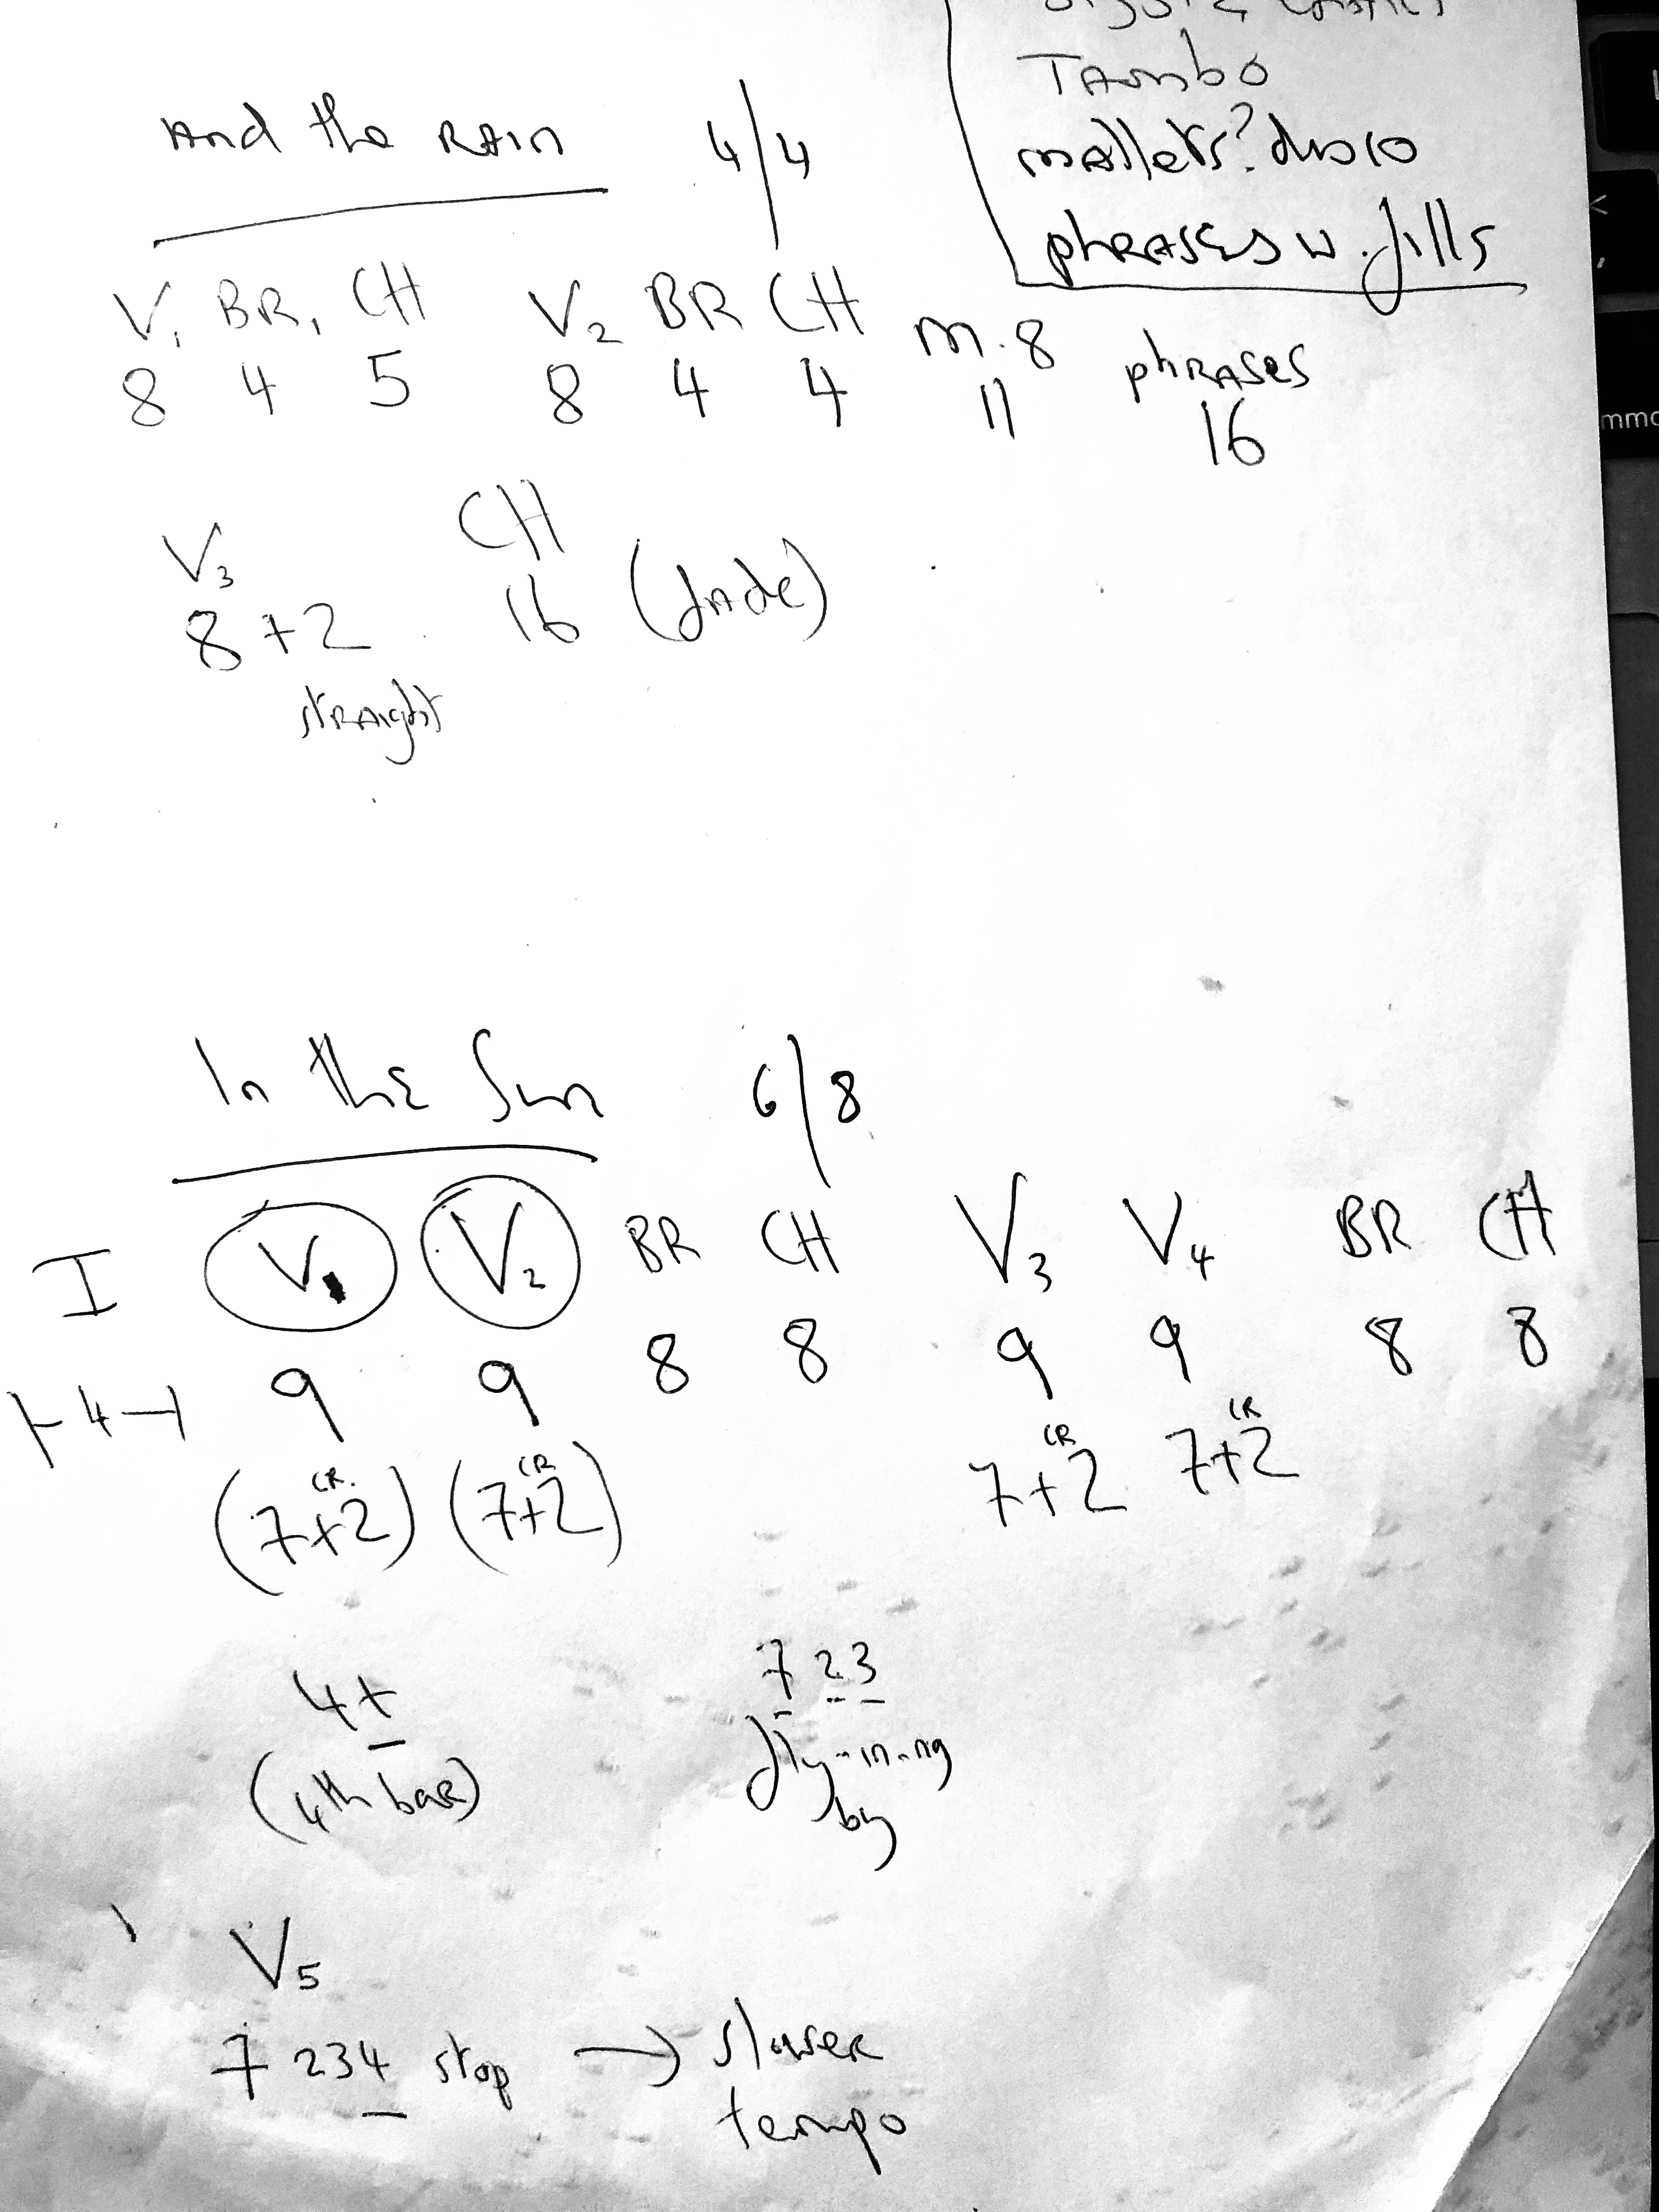 Tambo
mallets?
phrases w. fills
And the Rain 4/4
V1 BR, CH V2 BR CH M.8 phrases
8 4 5 8 4 4 11 16
V3 CH
8 +2 16 (fade)
straight
In the Sun 6/8
I V1 V2 BR CH V3 V4 BR CH
|-4-| 9 9 8 8 9 9 8 8
CR. CR CR CR
(7+2) (7+2) 7+2 7+2
4+ 7 23
(4th bar) fly-in-ng
by
V5
7 234 stop → slower
tempo
mmo
<
,